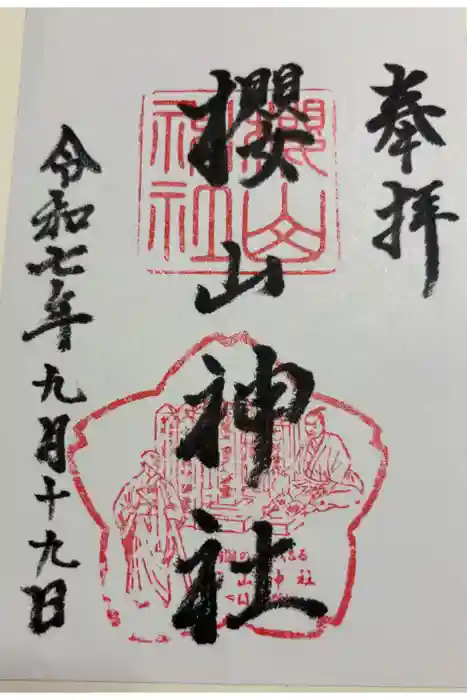 奉拝
櫻山神社
櫻山
神社
令和七年九月十九日